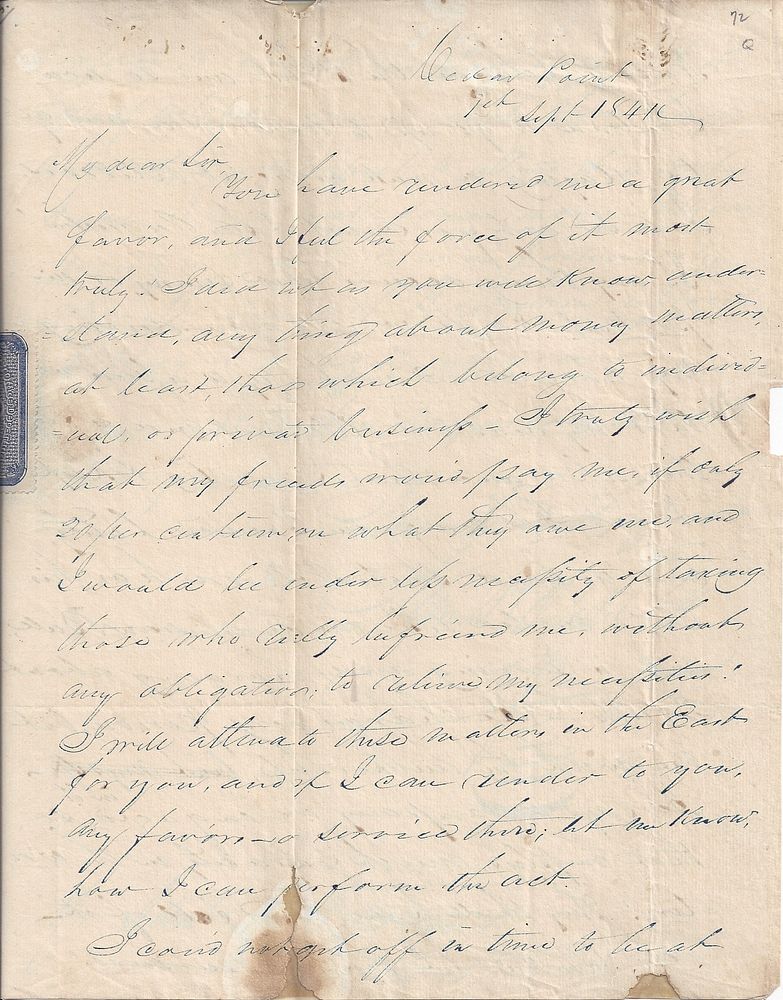 72
Q
Cedar Point
7th Sept 1841
My dear Sir,
You have rendered me a great
favor, and I feel the force of it most
truly! I did not as you well know, under-
=stand, any thing about money matters,
at least, thos which belong to individ=
=ual, or private business - I truly wish
that my friends would pay me, if only
20 per centum, on what they owe me, and
I would be under less necessity of taxing
those who really befriend me, without
any obligation, to relieve my necessities!
I will attend to these matters in the East
for you, and if I can render to you,
any favor - or service there; let me know,
how I can perform the act.
I could not get off in time to be at